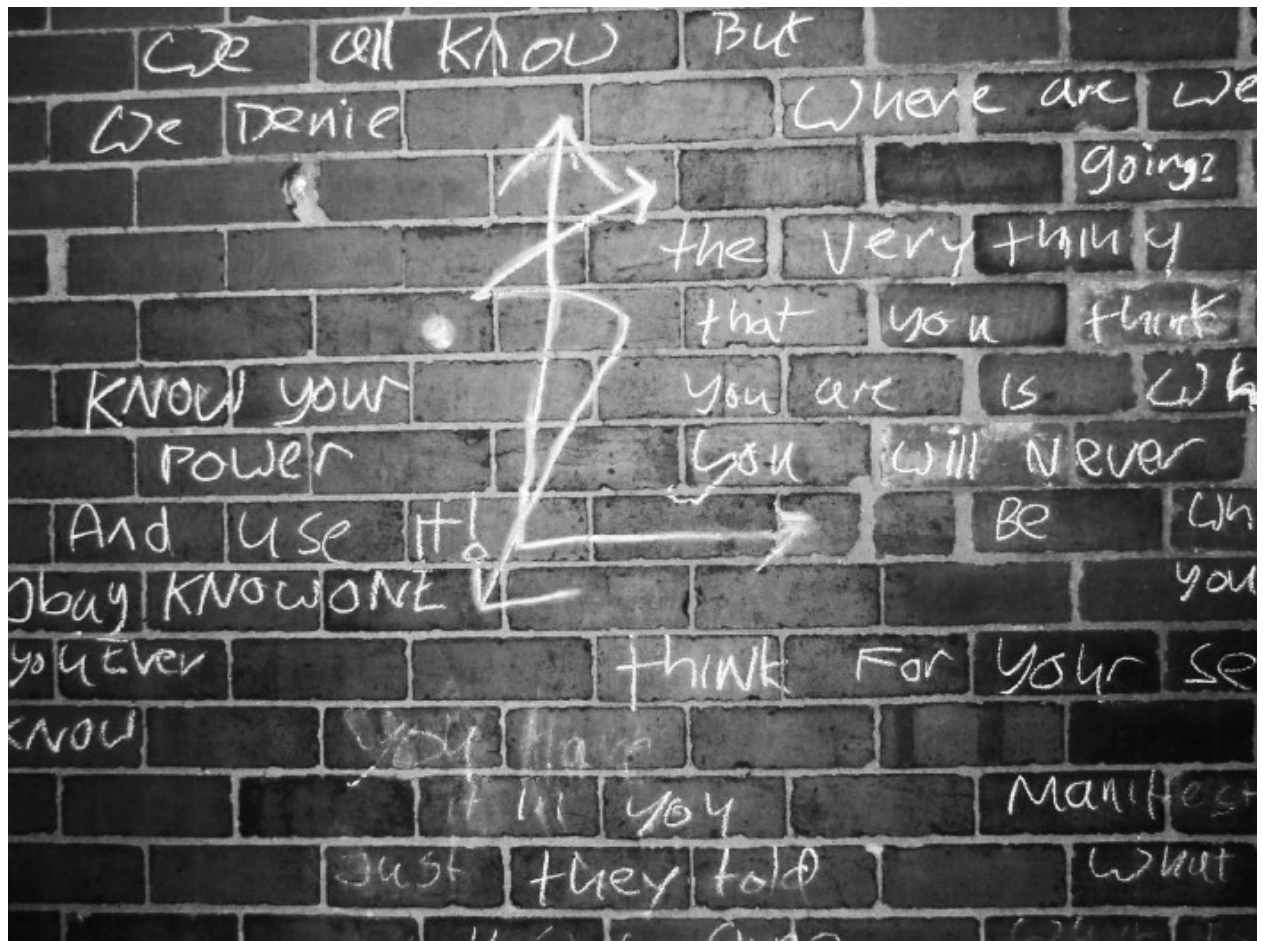 We all know But
We Denie
Where are we
going?
the very thing
that you think
you are is
you will Never
Be
you
KNOW your
POWER
And use it!
Obay KNOWONE
you Ever
KNOW
think For your se
you Have
it in you
Just they told
Manifest
what